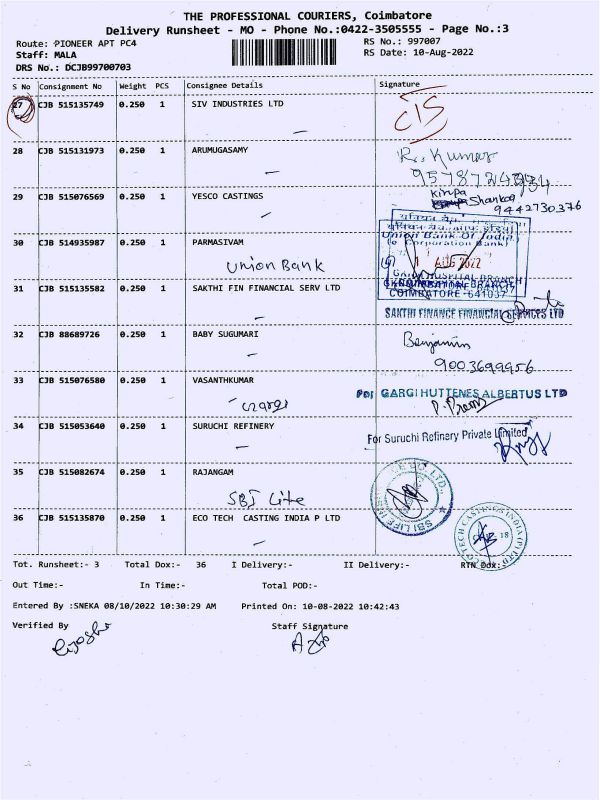 THE PROFESSIONAL COURIERS, Coimbatore
Delivery Runsheet - MO - Phone No.:0422-3505555 - Page No.:3
Route: PIONEER APT PC4
RS No.: 997007
Staff: MALA
RS Date: 10-Aug-2022
DRS No.: DCJB99700703
S No Consignment No Weight PCS Consignee Details Signature
27 CJB 515135749 0.250 1 SIV INDUSTRIES LTD
CIS
28 CJB 515131973 0.250 1 ARUMUGASAMY
R. Kumar
29 CJB 515076569 0.250 1 YESCO CASTINGS
Kirpa
Shankar
9442730376
30 CJB 514935987 0.250 1 PARMASIVAM
Union Bank
Union Bank Of India
(e Corporation Bank)
AUG 2022
COIMBATORE-641037
31 CJB 515135582 0.250 1 SAKTHI FIN FINANCIAL SERV LTD
SAKTHI FINANCE FINANCIAL SERVICES LTD
32 CJB 88689726 0.250 1 BABY SUGUMARI
Benjamin
9003699956
33 CJB 515076580 0.250 1 VASANTHKUMAR
Gargi
GARGI HUTTENES ALBERTUS LTD
34 CJB 515053640 0.250 1 SURUCHI REFINERY
For Suruchi Refinery Private Limited
35 CJB 515082674 0.250 1 RAJANGAM
SBI Life
SBI LIFE
36 CJB 515135870 0.250 1 ECO TECH CASTING INDIA P LTD
ECOTECH CASTINGS INDIA (P) LTD
18
Tot. Runsheet:- 3 Total Dox:- 36 I Delivery:- II Delivery:- RTN Dox:-
Out Time:- In Time:- Total POD:-
Entered By :SNEKA 08/10/2022 10:30:29 AM Printed On: 10-08-2022 10:42:43
Verified By Staff Signature